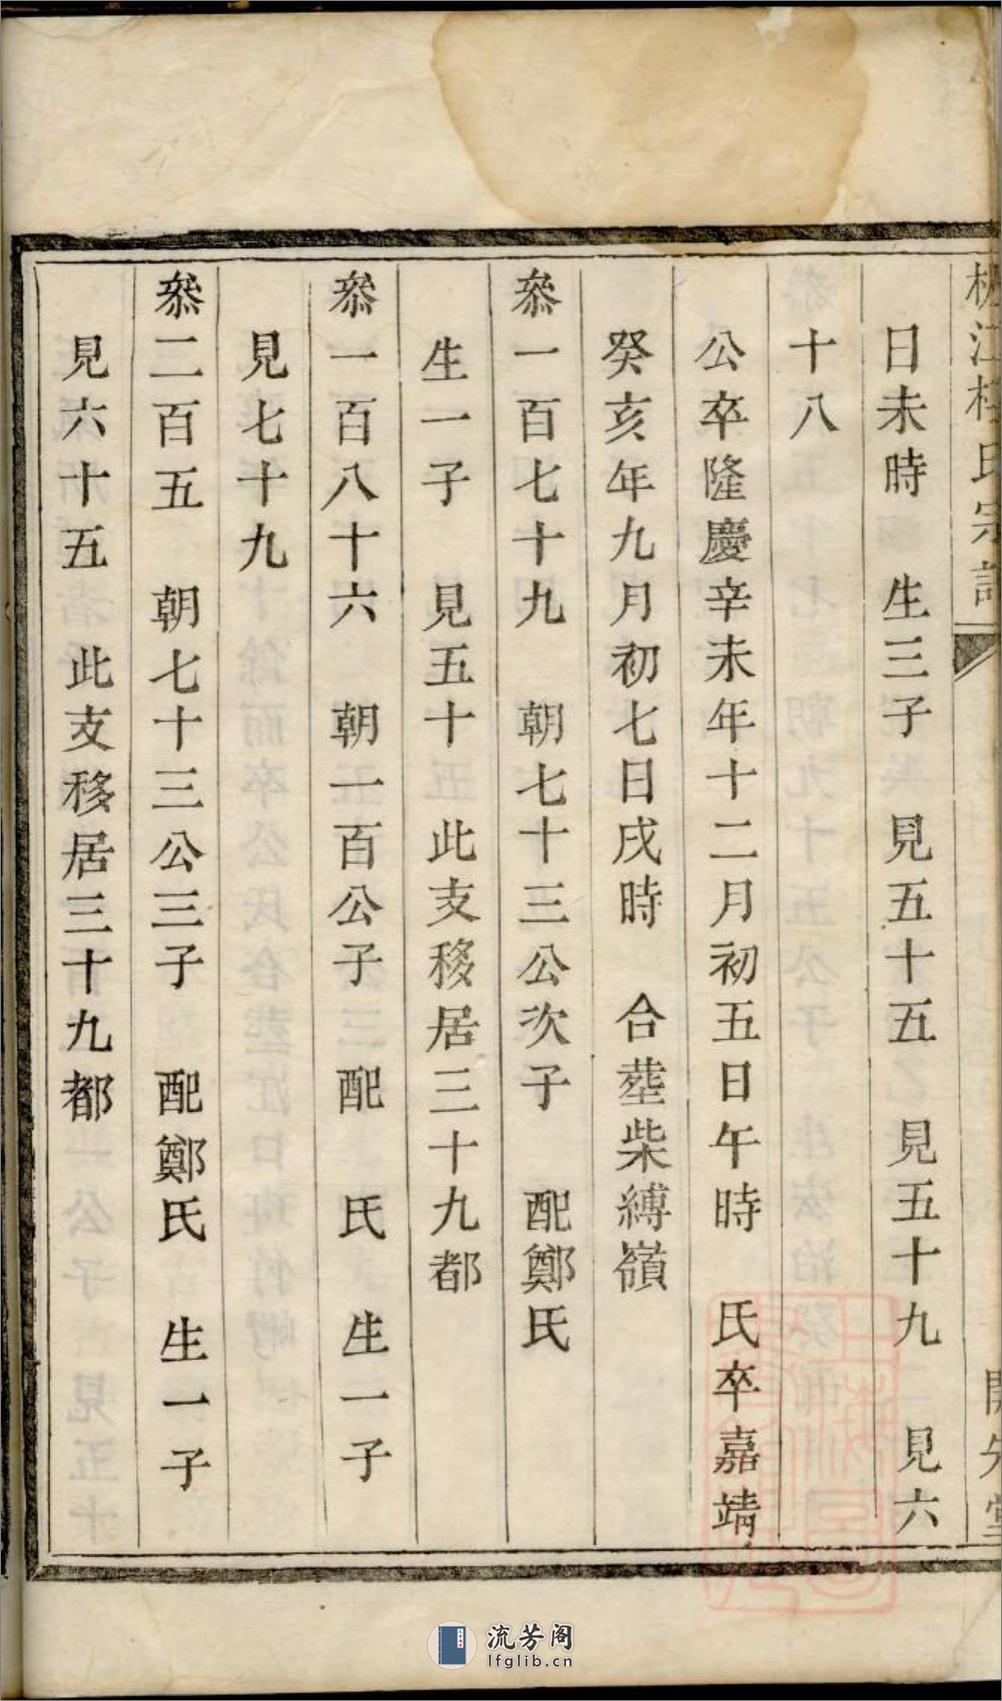 江桂氏宗譜
日未時　生三子　見五十五　見五十九　見六
十八
公卒隆慶辛未年十二月初五日午時　氏卒嘉靖
癸亥年九月初七日戌時　合塟柴縛嶺
叅一百七十九　朝七十三公次子　配鄭氏
生一子　見五十　此支移居三十九都
叅一百八十六　朝一百公子　配　氏　生一子
見七十九
叅二百五　朝七十三公三子　配鄭氏　生一子
見六十五　此支移居三十九都
流芳阁
lfglib.cn